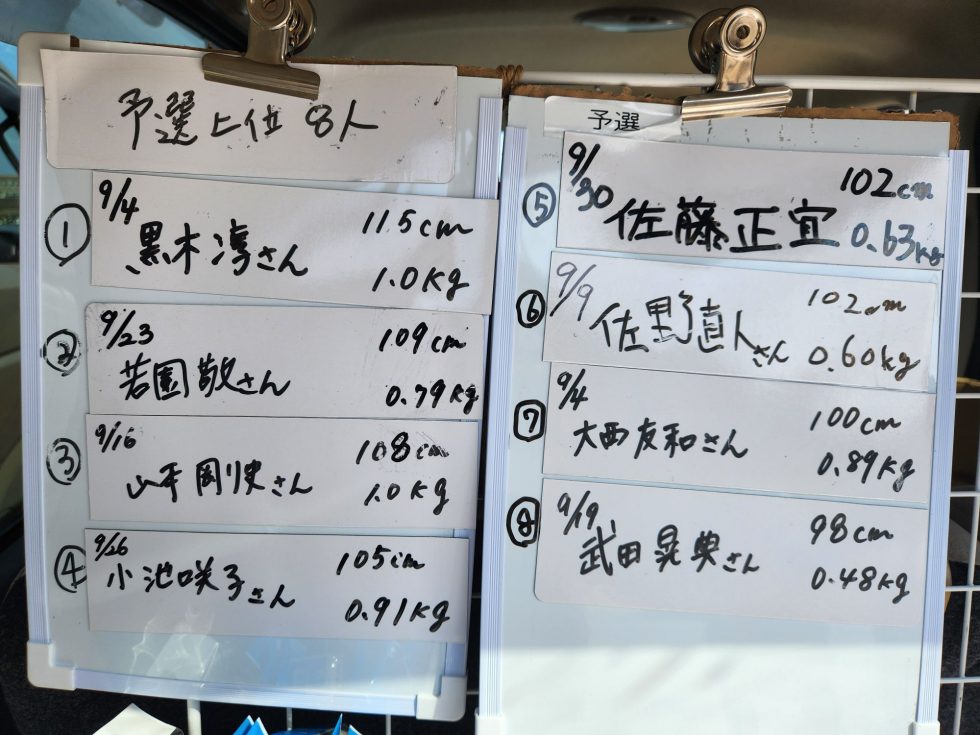 予選上位 8人
① 9/4 黒木淳さん 115cm 1.0kg
② 9/23 若園敬さん 109cm 0.79kg
③ 9/16 山本剛史さん 108cm 1.0kg
④ 9/26 小池咲子さん 105cm 0.91kg
予選
⑤ 9/30 佐藤正宜 102cm 0.63kg
⑥ 9/9 佐野直人さん 102cm 0.60kg
⑦ 9/4 大西友和さん 100cm 0.89kg
⑧ 9/19 武田晃典さん 98cm 0.48kg